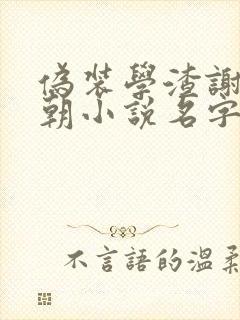 偽裝學渣謝
朝小說名字
不言語的溫柔